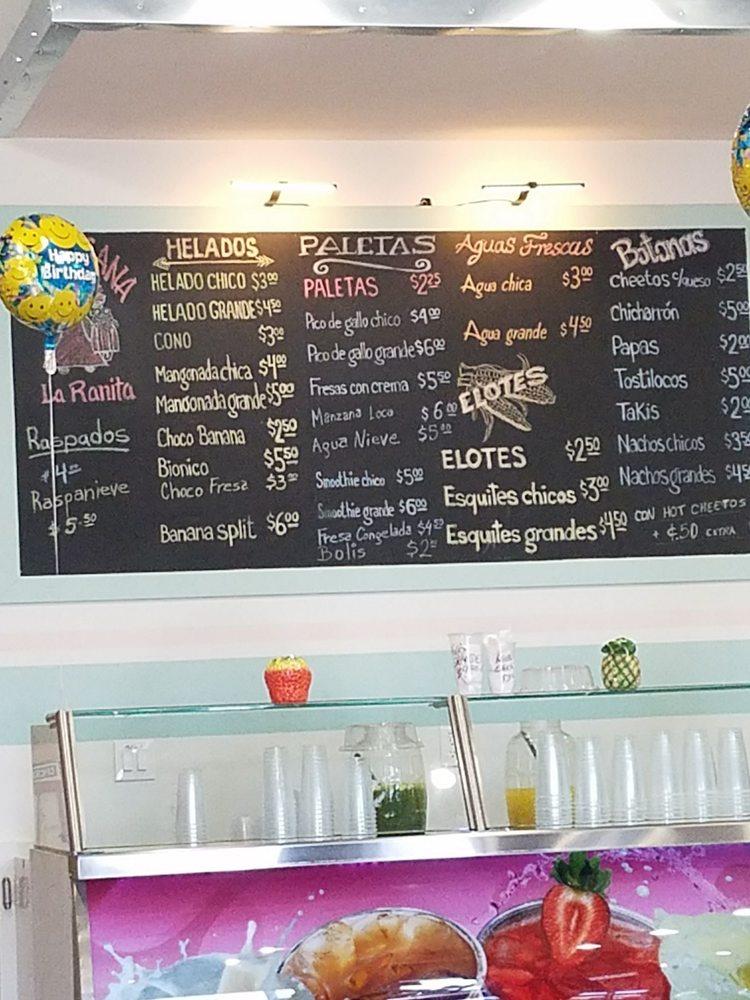 Happy
Birthday
ANA
La Ranita
Raspados
$4.00
Raspanieve
$5.50
HELADOS
HELADO CHICO $3.00
HELADO GRANDE $4.50
CONO $3.00
Mangonada chica $4.00
Mangonada grande $5.00
Choco Banana $2.50
Bionico $5.50
Choco Fresa $3.00
Banana split $6.00
PALETAS
PALETAS $2.25
Pico de gallo chico $4.00
Pico de gallo grande $6.00
Fresas con crema $5.50
Manzana Loca $6.00
Agua Nieve $5.00
Smoothie chico $5.00
Smoothie grande $6.00
Fresa Congelada
Bolis
Aguas Frescas
Agua chica $3.00
Agua grande $4.50
ELOTES
ELOTES $2.50
Esquites chicos $3.00
Esquites grandes $4.50
Botanas
Cheetos c/queso
Chicharrón
Papas
Tostilocos
Takis
Nachos chicos
Nachos grandes
CON HOT CHEETOS
+ ¢.50 EXTRA